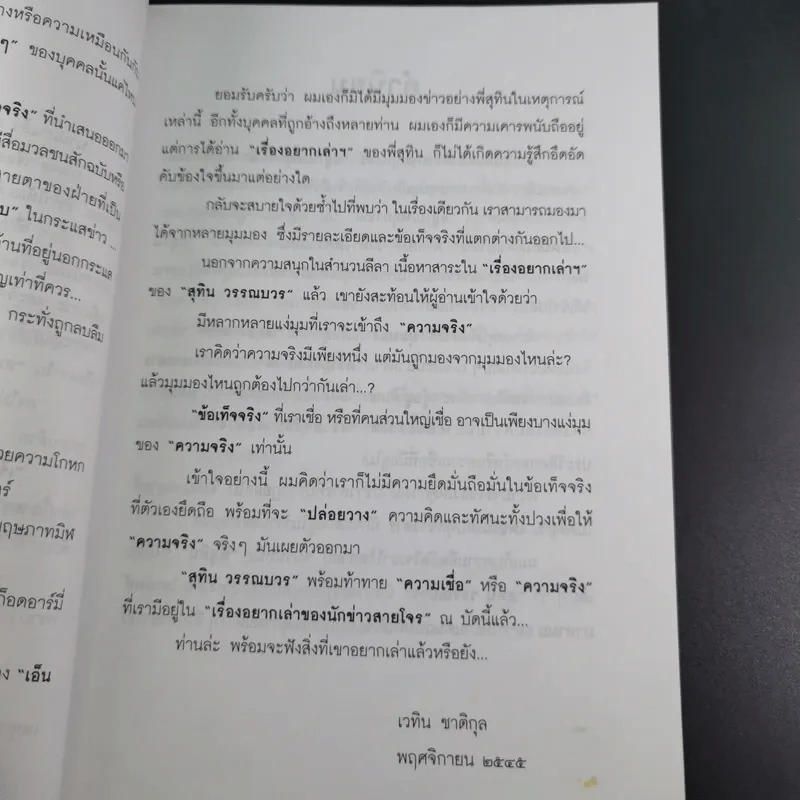 างหรือความเหมือนกันกับ
ๆ” ของบุคคลนั้นแค่ไหน
จริง” ที่นำเสนอออกมา
สื่อมวลชนสักฉบับหรือ
ายตาของฝ่ายที่เป็น
บ” ในกระแสข่าว ...
ด้านที่อยู่นอกกระแส
ญเท่าที่ควร...
กระทั่งถูกลบลืม
วยความโกหก
ร์
พฤษภาทมิฬ
ก็อดอาร์มี่
ง “เอ็น
ยอมรับครับว่า ผมเองก็มิได้มีมุมมองข่าวอย่างพี่สุทินในเหตุการณ์
เหล่านี้ อีกทั้งบุคคลที่ถูกอ้างถึงหลายท่าน ผมเองก็มีความเคารพนับถืออยู่
แต่การได้อ่าน “เรื่องอยากเล่าฯ” ของพี่สุทิน ก็ไม่ได้เกิดความรู้สึกอึดอัด
คับข้องใจขึ้นมาแต่อย่างใด
กลับจะสบายใจด้วยซ้ำไปที่พบว่า ในเรื่องเดียวกัน เราสามารถมองมา
ได้จากหลายมุมมอง ซึ่งมีรายละเอียดและข้อเท็จจริงที่แตกต่างกันออกไป...
นอกจากความสนุกในสำนวนลีลา เนื้อหาสาระใน “เรื่องอยากเล่าฯ”
ของ “สุทิน วรรณบวร” แล้ว เขายังสะท้อนให้ผู้อ่านเข้าใจด้วยว่า
มีหลากหลายแง่มุมที่เราจะเข้าถึง “ความจริง”
เราคิดว่าความจริงมีเพียงหนึ่ง แต่มันถูกมองจากมุมมองไหนล่ะ?
แล้วมุมมองไหนถูกต้องไปกว่ากันเล่า...?
“ข้อเท็จจริง” ที่เราเชื่อ หรือที่คนส่วนใหญ่เชื่อ อาจเป็นเพียงบางแง่มุม
ของ “ความจริง” เท่านั้น
เข้าใจอย่างนี้ ผมคิดว่าเราก็ไม่มีความยึดมั่นถือมั่นในข้อเท็จจริง
ที่ตัวเองยึดถือ พร้อมที่จะ “ปล่อยวาง” ความคิดและทัศนะทั้งปวงเพื่อให้
“ความจริง” จริงๆ มันเผยตัวออกมา
“สุทิน วรรณบวร” พร้อมท้าทาย “ความเชื่อ” หรือ “ความจริง”
ที่เรามีอยู่ใน “เรื่องอยากเล่าของนักข่าวสายโจร” ณ บัดนี้แล้ว...
ท่านล่ะ พร้อมจะฟังสิ่งที่เขาอยากเล่าแล้วหรือยัง...
เวทิน ชาติกุล
พฤศจิกายน ๒๕๔๕